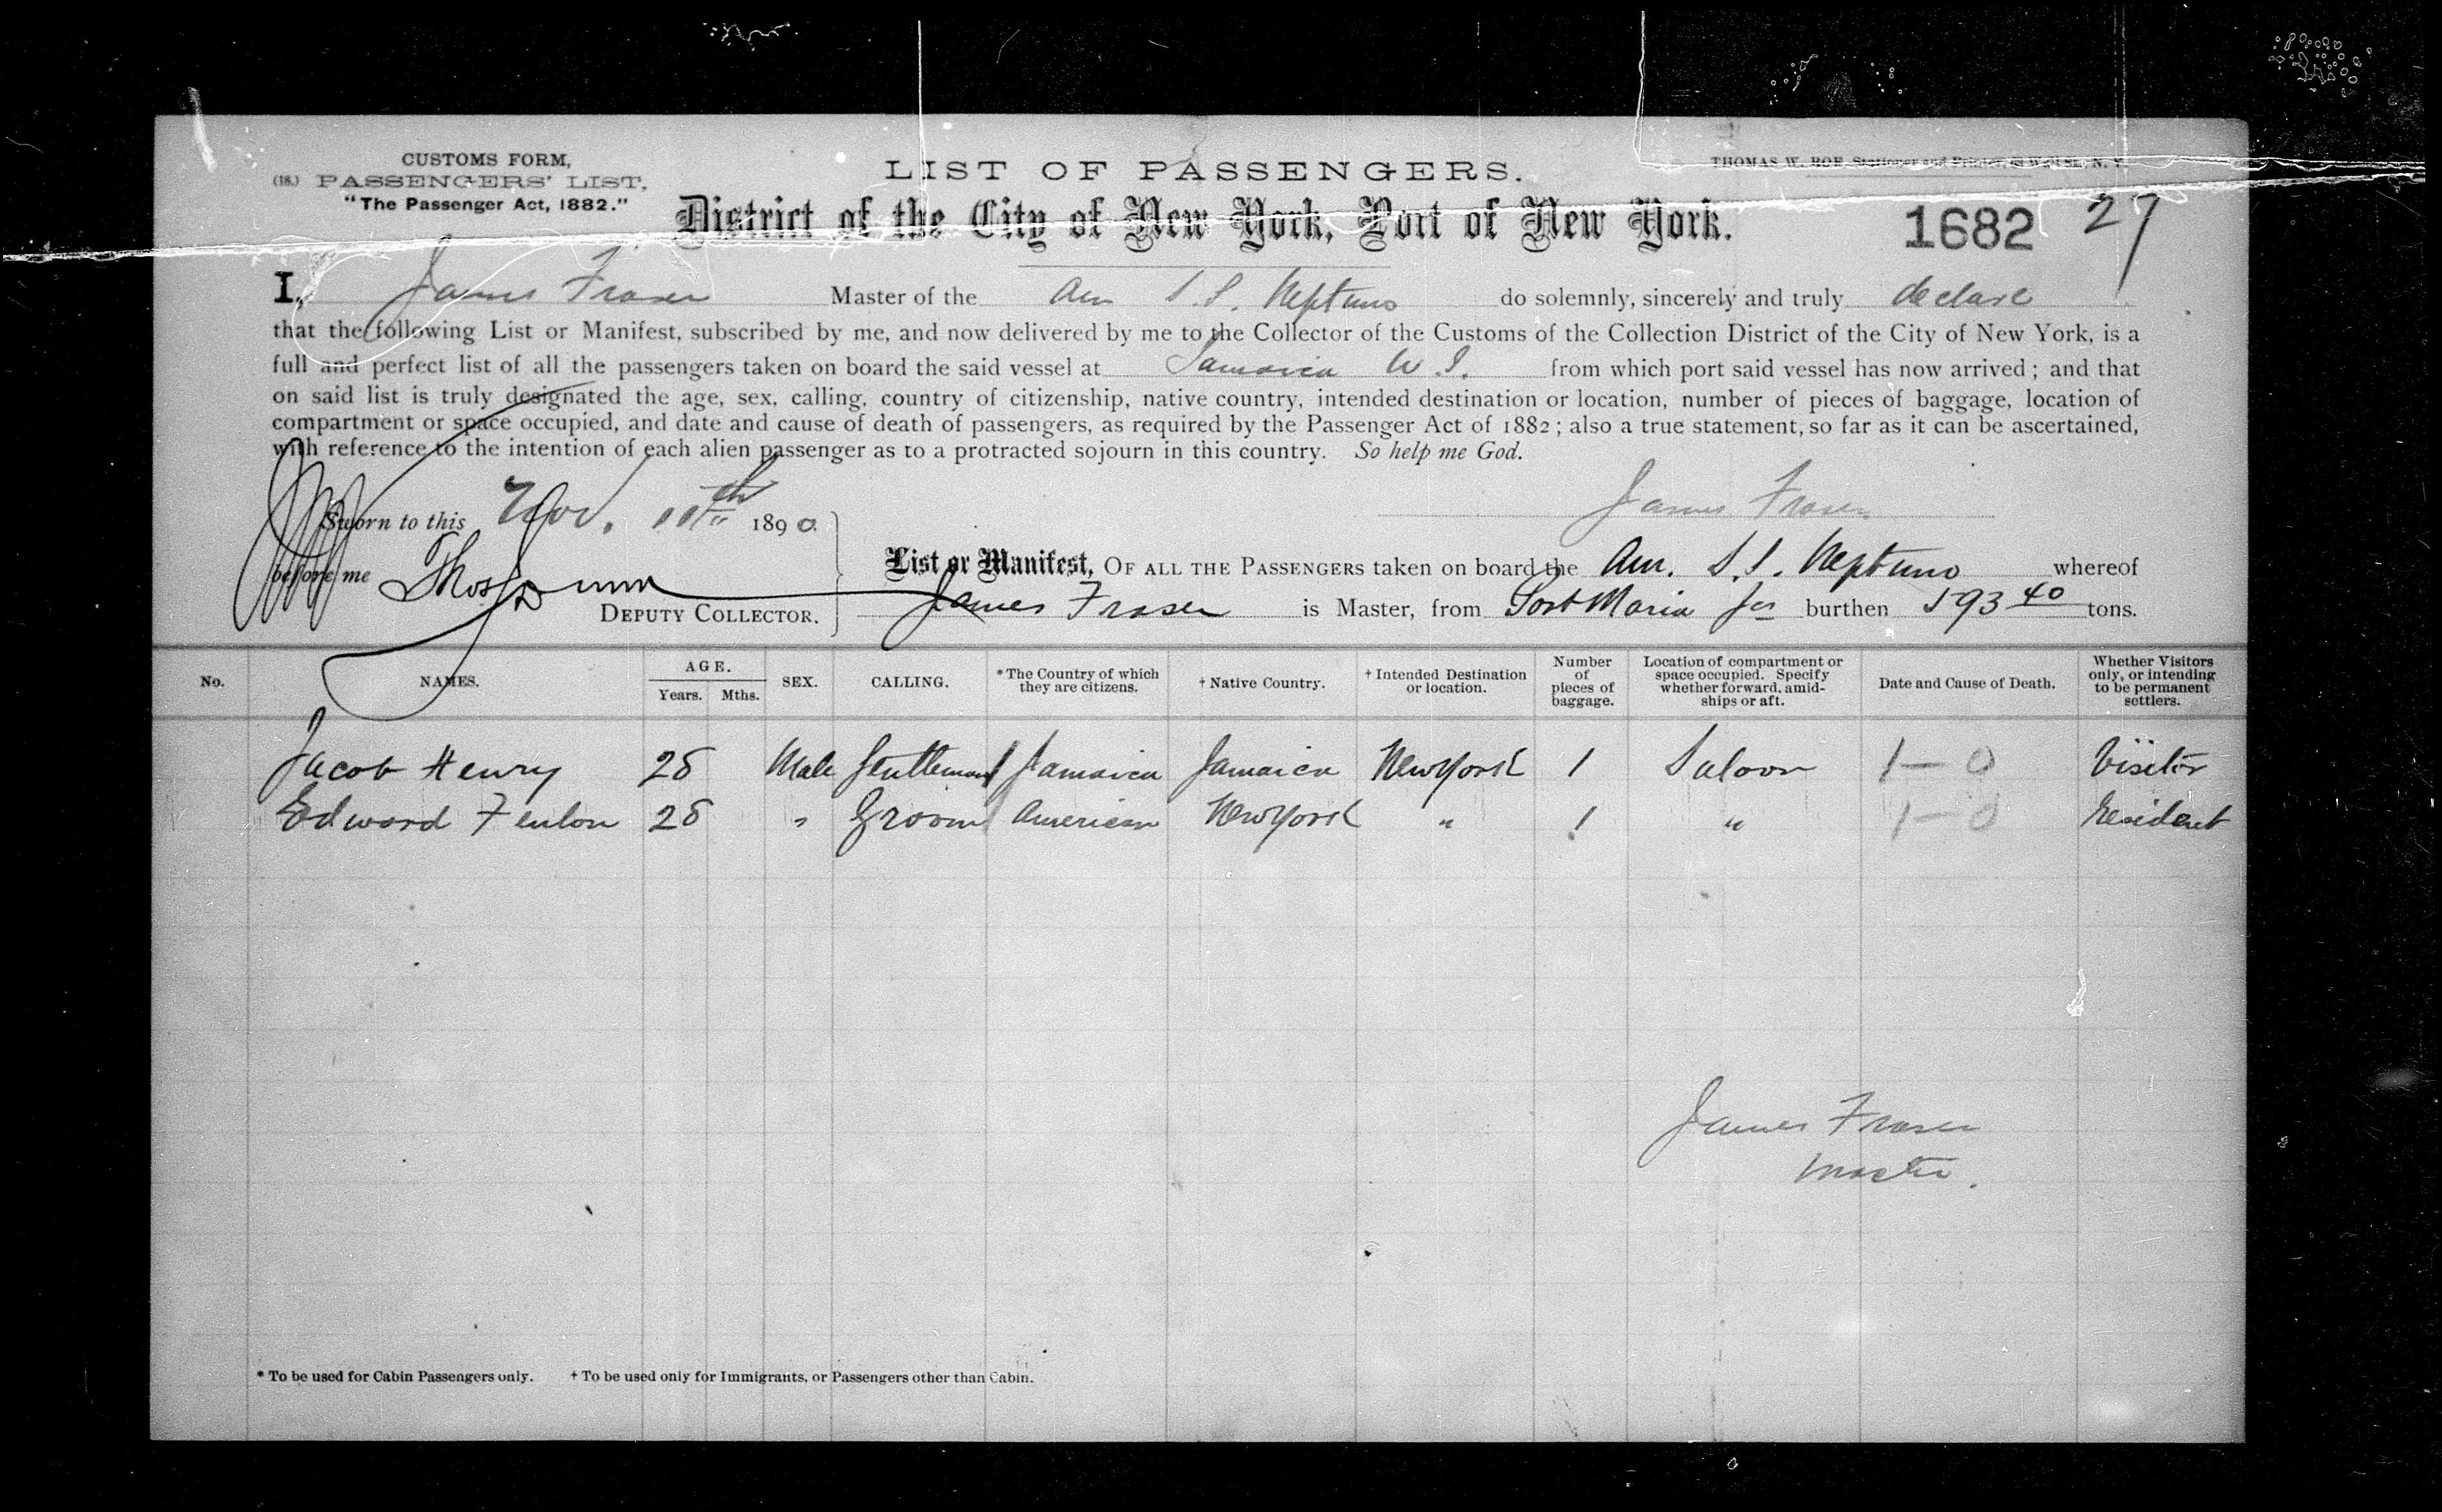 CUSTOMS FORM,
(18.) PASSENGERS' LIST,
"The Passenger Act, 1882."
LIST OF PASSENGERS.
THOMAS W. ROE, Stationer and Printer, Wall St., N. Y.
District of the City of New York, Port of New York.
1682 27
I, James Fraser Master of the Am S.S. Neptuno do solemnly, sincerely and truly declare
that the following List or Manifest, subscribed by me, and now delivered by me to the Collector of the Customs of the Collection District of the City of New York, is a
full and perfect list of all the passengers taken on board the said vessel at Jamaica W.I. from which port said vessel has now arrived; and that
on said list is truly designated the age, sex, calling, country of citizenship, native country, intended destination or location, number of pieces of baggage, location of
compartment or space occupied, and date and cause of death of passengers, as required by the Passenger Act of 1882; also a true statement, so far as it can be ascertained,
with reference to the intention of each alien passenger as to a protracted sojourn in this country. So help me God.
James Fraser
Sworn to this Nov. 11th 1890.
before me Thos Dunn
DEPUTY COLLECTOR.
List or Manifest, OF ALL THE PASSENGERS taken on board the Am. S.S. Neptuno whereof
James Fraser is Master, from Port Maria Ja burthen 593 40 tons.
No. NAMES. AGE. Years. Mths. SEX. CALLING. *The Country of which they are citizens. † Native Country. † Intended Destination or location. Number of pieces of baggage. Location of compartment or space occupied. Specify whether forward, amid-ships or aft. Date and Cause of Death. Whether Visitors only, or intending to be permanent settlers.
Jacob Henry 28 Male Gentleman Jamaica Jamaica New York 1 Saloon 1-0 Visitor
Edward Fenlon 28 " Groom American New York " 1 " 1-0 Resident
James Fraser
Master.
* To be used for Cabin Passengers only. † To be used only for Immigrants, or Passengers other than Cabin.